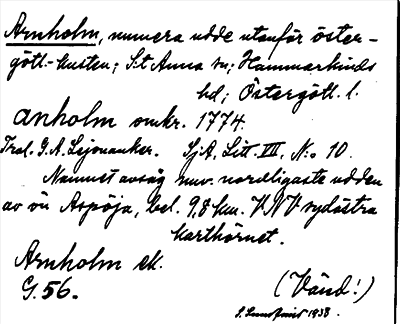 Arnholm, numera udde utanför öster-
götl.-kusten; S:t Anna sn; Hammarkinds
hd; Östergötl. l.
anholm omkr. 1774.
Tral. G. A. Lejonanker. SjA, Litt. VII, N:o 10.
Namnet avsåg nuv. nordligaste udden
av ön Aspöja, bel. 9,8 km. VNV sydöstra
karthörnet.
Arnholm ek.
G. 56. (Vänd!)
S. Lundqvist 1938.